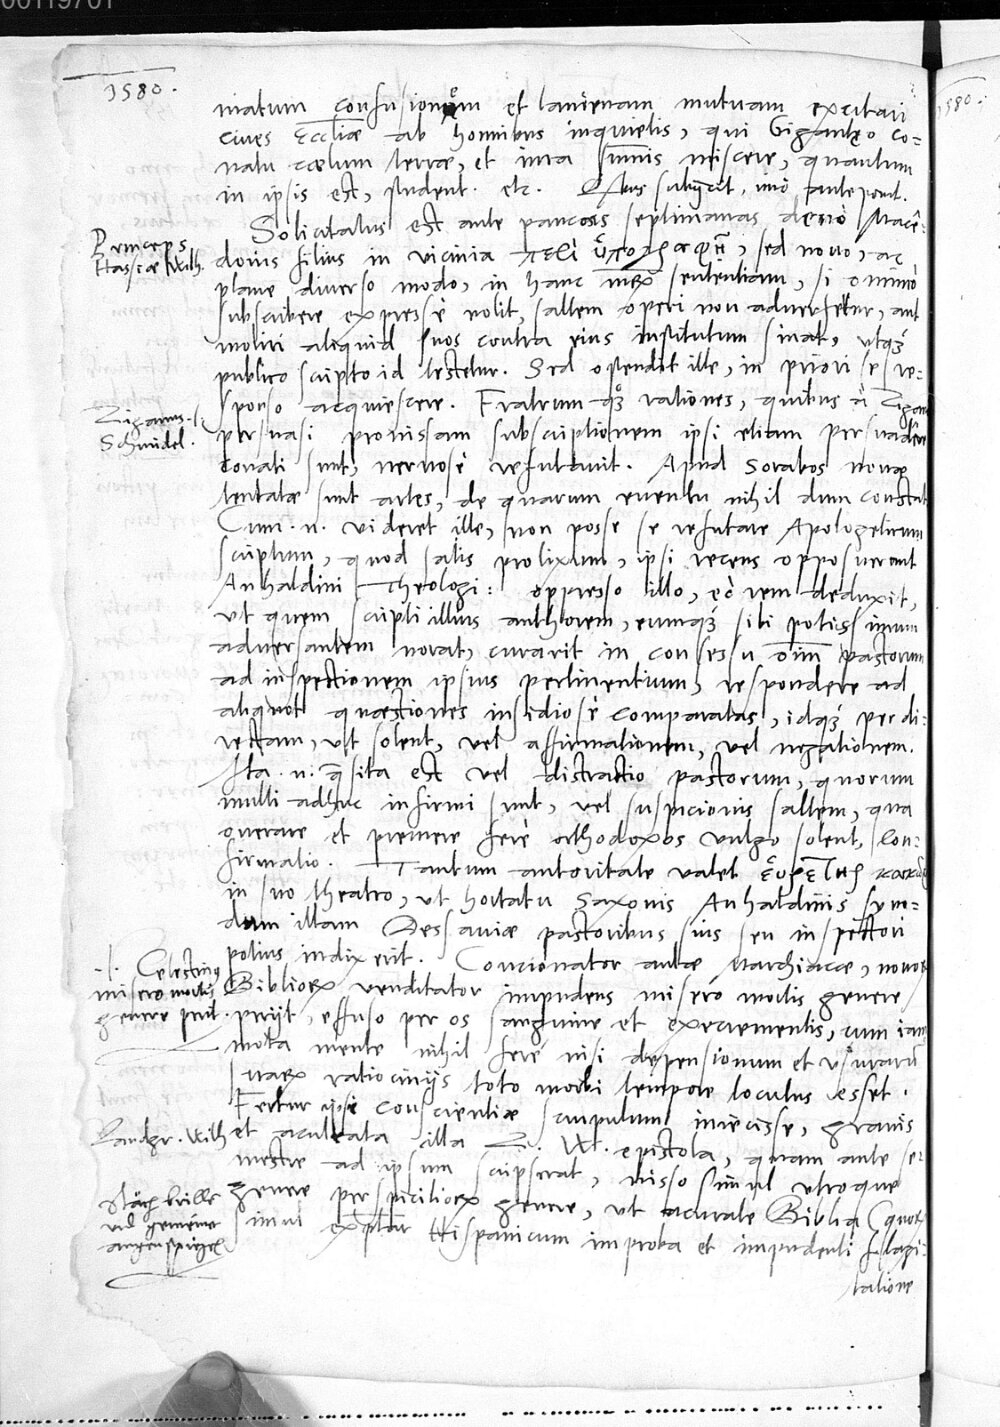 00119701
1580.
1580.
matum confusionem et lanienam mutuam excitari
cives Eccliæ ab hominibus inquietis, qui Giganteo co=
natu cœlum terræ, et ima summis miscere, quantum
in ipsis est, student. etc.
Solicitatus est ante paucas septimanas denuo Mace-
Princeps
Hassiæ Wilh.
donis filius in vicinia sed novo, ac
plane diverso modo, in hanc sententiam, si omnino
subscribere expressè nolit, saltem operi non adversetur, aut
moliri aliquid suos contra eius institutum sinat, utq3
publico scripto id testetur. Sed ostendit ille, in priori se re=
Ziganus.
Schmidel.
sponso acquiescere. Fratrum rationes, quibus à Zigano
persuasi promissam subscriptionem ipsi etiam persuadere
conati sunt, nervosè refutavit. Apud Sorabos novæ
tentatæ sunt artes, de quarum eventu nihil dum constat
Cum .n. videret ille, non posse se refutare Apologeticum
scriptum, quod satis prolixum, ipsi recens opposuerunt
Anhaldini Theologi: oppresso illo, eò rem deduxit,
ut quem scripti illius authorem, eumq3 sibi potissimum
adversantem norat, curarit in consessu oim pastorum
ad inspectionem ipsius pertinentium, respondere ad
aliquot quæstiones insidiosè comparatas, idq3 per di=
rectam, ut solent, vel affirmationem, vel negationem.
Ita .n. quæsita est vel distractio pastorum, quorum
multi adhuc infirmi sunt, vel suspicionis saltem, qua
onerare et premere ferè orthodoxos vulgo solent, con=
firmatio. Tantum autoritate valet
in suo theatro, ut hortatu Saxonis Anhaldinis syno=
dum illam Dessaviæ pastoribus suis seu inspectori
potius indixerit. Concionator aulæ Marchiacæ, novor
Celestinus
misero mortis
genere perit.
Bibliorum venditator impudens misero mortis genere
perijt, effuso per os sanguine et excrementis, cum iam
mota mente nihil ferè nisi de pensionum et usuraru
suarum ratiocinijs toto morbi tempore locutus esset.
Fertur ipsi conscientiæ scrupulum iniecisse, gravis
Landgr. Wilh
et aculeata illa Z. W. epistola, quam ante se
mestre ad ipsum scripserat, misso simul utroque
genere perspiciliorum genere, ut accurate Biblia (quor
simul exemplar Hispanicum improba et impudenti flagi-
tatione